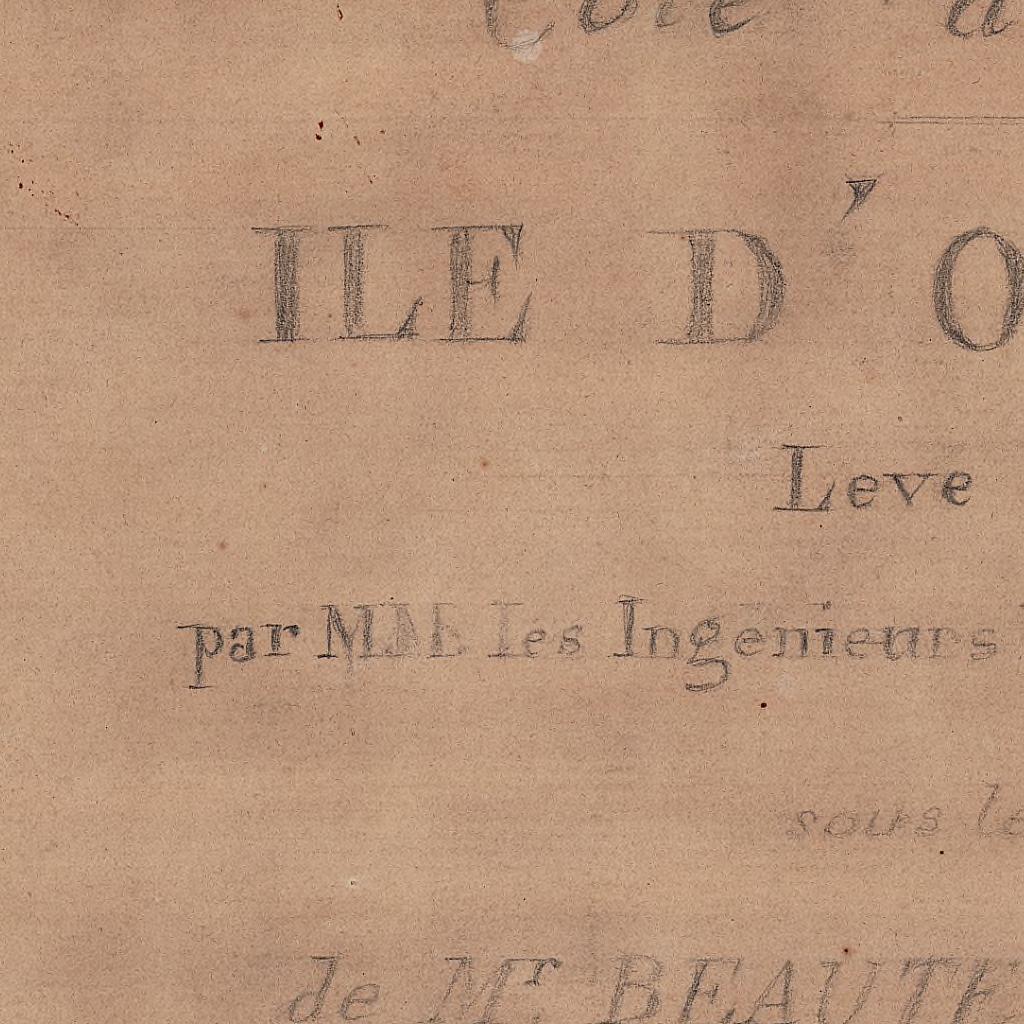 Côte d
ILE D'O
Leve
par MM. les Ingenieurs
sous le
de Mr BEAUTE